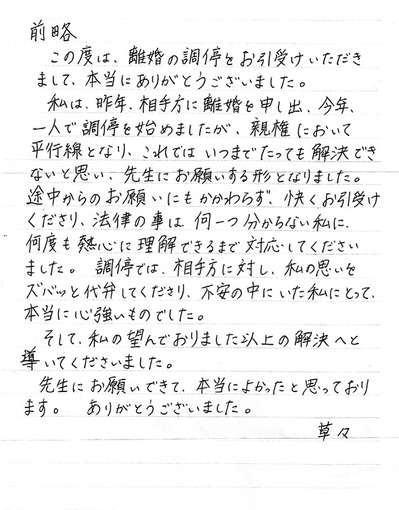 前略
この度は、離婚の調停をお引受けいただき
まして、本当にありがとうございました。
私は、昨年、相手方に離婚を申し出、今年、
一人で調停を始めましたが、親権において
平行線となり、これではいつまでたっても解決でき
ないと思い、先生にお願いする形となりました。
途中からのお願いにもかかわらず、快くお引受け
くださり、法律の事は何一つ分からない私に、
何度も熱心に理解できるまで対応してください
ました。調停では、相手方に対し、私の思いを
ズバッと代弁してくださり、不安の中にいた私にとって、
本当に心強いものでした。
そして、私の望んでおりました以上の解決へと
導いてくださいました。
先生にお願いできて、本当によかったと思っており
ます。 ありがとうございました。
草々